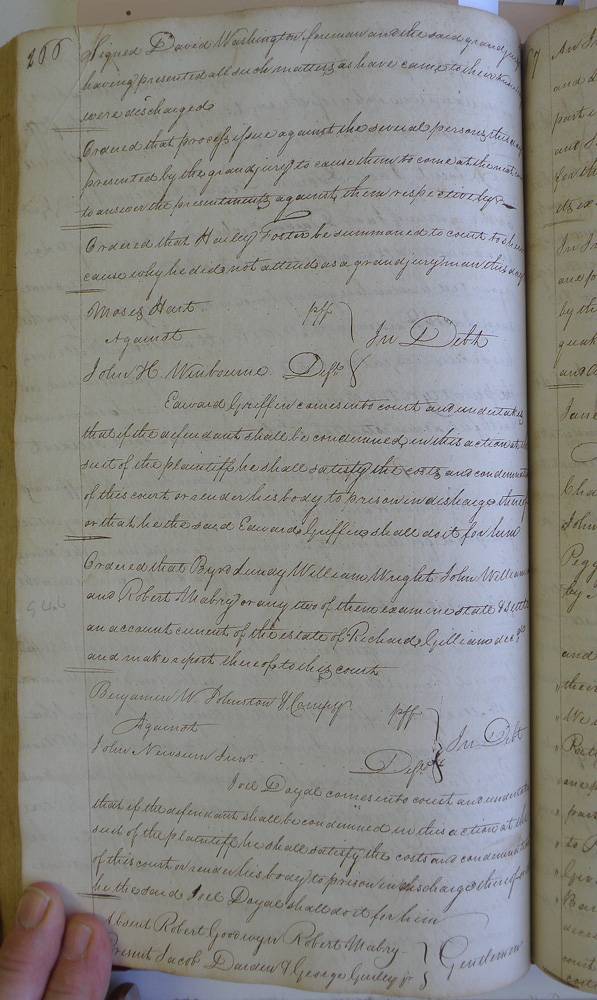 266
Signed David Washington foreman and the said grand jury
having presented all such matters as have came to their
were discharged
Ordered that process issue against the several persons this day
presented by the grand jury to cause them to come at the next
to answer the presentments against them respectively
Ordered that Foster be summoned to court to shew
cause why he did not attend as a grand jury man this day
Moses Hart plff
Against
In Debt
John H. Winbourne Deft
Edward Griffin comes into court and undertakes
that if the defendant shall be condemned in this action at the
suit of the plaintiff he shall satisfy the costs and condemnation
of this court or render his body to prison in discharge thereof
or that he the said Edward Griffin shall do it for him
Ordered that Byrd Lundy William Wright John William
and Robert Mabry or any two of them examine state & settle
an account current of the estate of Richard Gilliam decd
and make report thereof to this court
Benjamin W Johnston & Compy plff
Against
In Debt
John Newsum Junr
Deft
Joel Doyal comes into court and undertakes
that if the defendant shall be condemned in this action at the
suit of the plaintiff he shall satisfy the costs and condemnation
of this court or render his body to prison in discharge thereof or
he the said Joel Doyal shall do it for him
Absent Robert Goodwyn Robert Mabry
Gentlemen
Present Jacob Darden & George Gurley jr